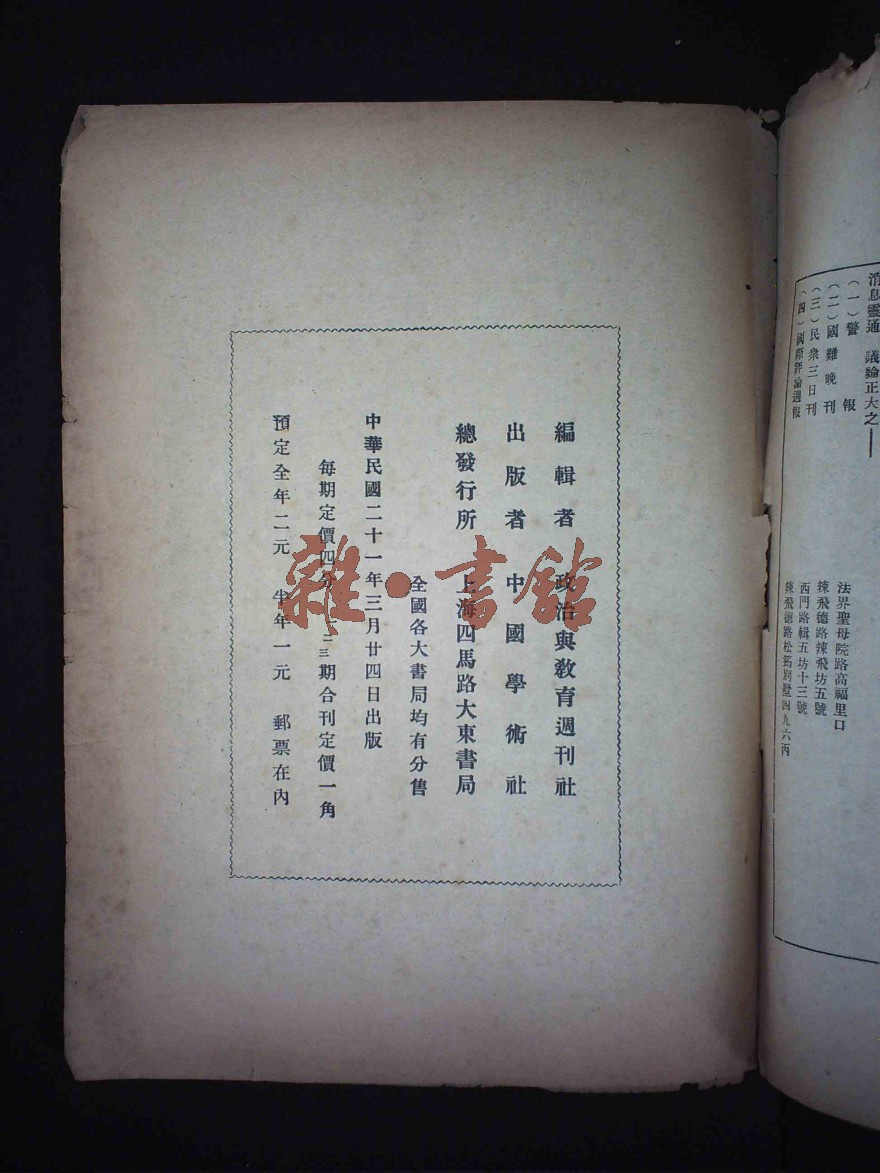 消息靈通　議論正大之——
（一）警報
（二）國難晚刊
（三）民衆三日刊
（四）國際評論週報
法界聖母院路高福里口
辣飛德路辣飛坊五號
西門路輯五坊十三號
辣飛德路松筠別墅四九六丙
編輯者　政治與敎育週刊社
出版者　中國學術社
總發行所　上海四馬路大東書局
全國各大書局均有分售
中華民國二十一年三月廿四日出版
每期定價四分　二三期合刊定價一角
預定全年二元　半年一元　郵票在內
雜·書館